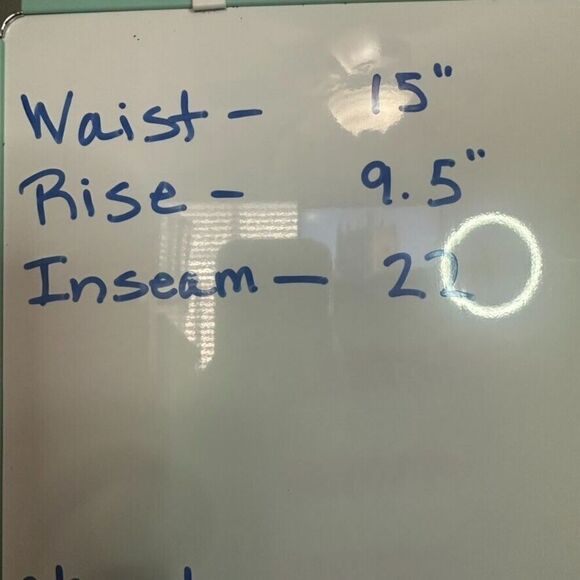 Waist - 15"
Rise - 9.5"
Inseam - 22